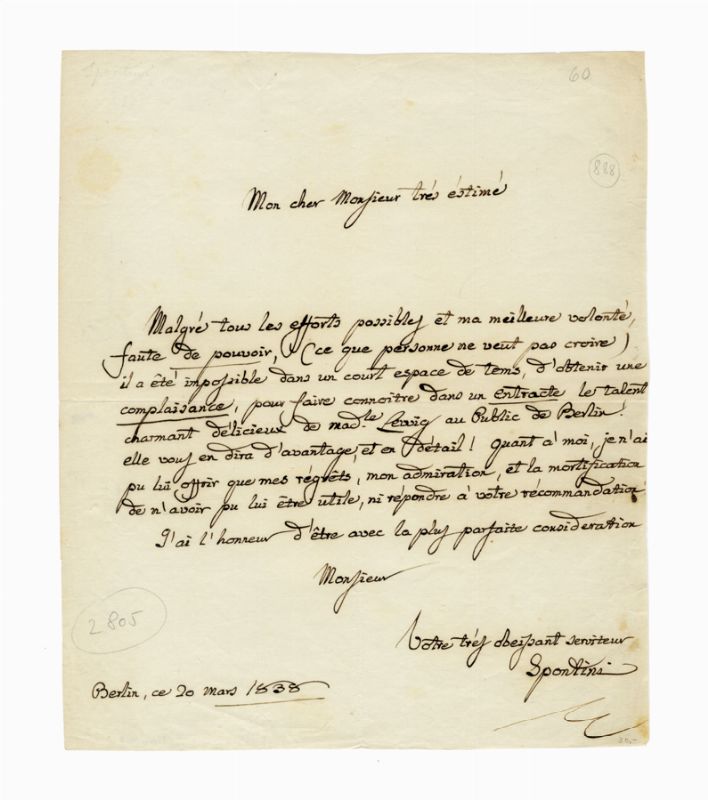 Spontini
60
888
Mon cher Monsieur trés éstimé
Malgré tous les efforts possibles et ma meilleure volonté,
faute de pouvoir, (ce que personne ne veut pas croire)
il a été impossible dans un court espace de tems, d'obtenir une
complaisance, pour faire connoître dans un entracte le talent
charmant délicieux de madlle au Public de Berlin!
elle vous en dira d'avantage, et en détail! quant à moi, je n'ai
pu lui offrir que mes régrèts, mon admiration, et la mortification
de n'avoir pu lui être utile, ni répondre à votre récommandation
J'ai l'honneur d'être avec la plus parfaite consideration
Monsieur
2805
Votre trés obeissant serviteur
Spontini
Berlin, ce 20 mars 1838